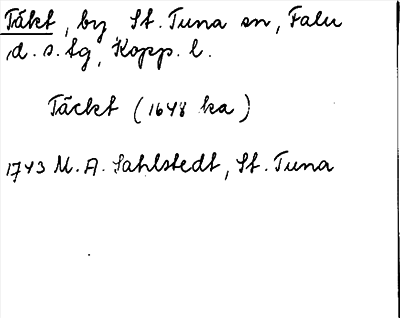 Täkt, by St. Tuna sn, Falu
d. s. tg, Kopp. l.
Täckt (1648 ka)
1743 M. A. Sahlstedt, St. Tuna